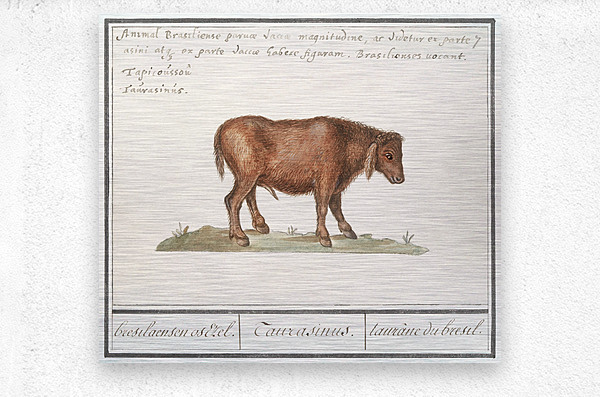 Animal Brasiliense parvæ vaccæ magnitudine, ac videtur ex parte
asini atq; ex parte vaccæ habere figuram. Brasilienses vocant.
Tapiroússoú
Taúrasinús.
bresilaensen osEzel.
Taurasinus.
taurâne du bresil.